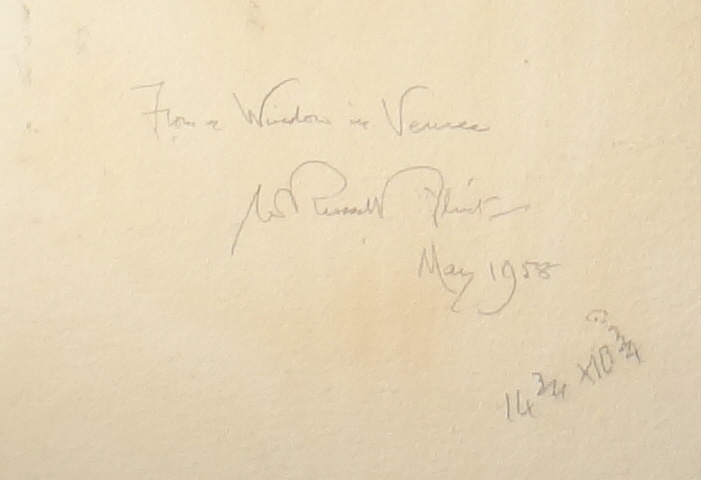 From a Window in Venice
W Russell Flint
May 1958
14 3/4 x 10 3/4